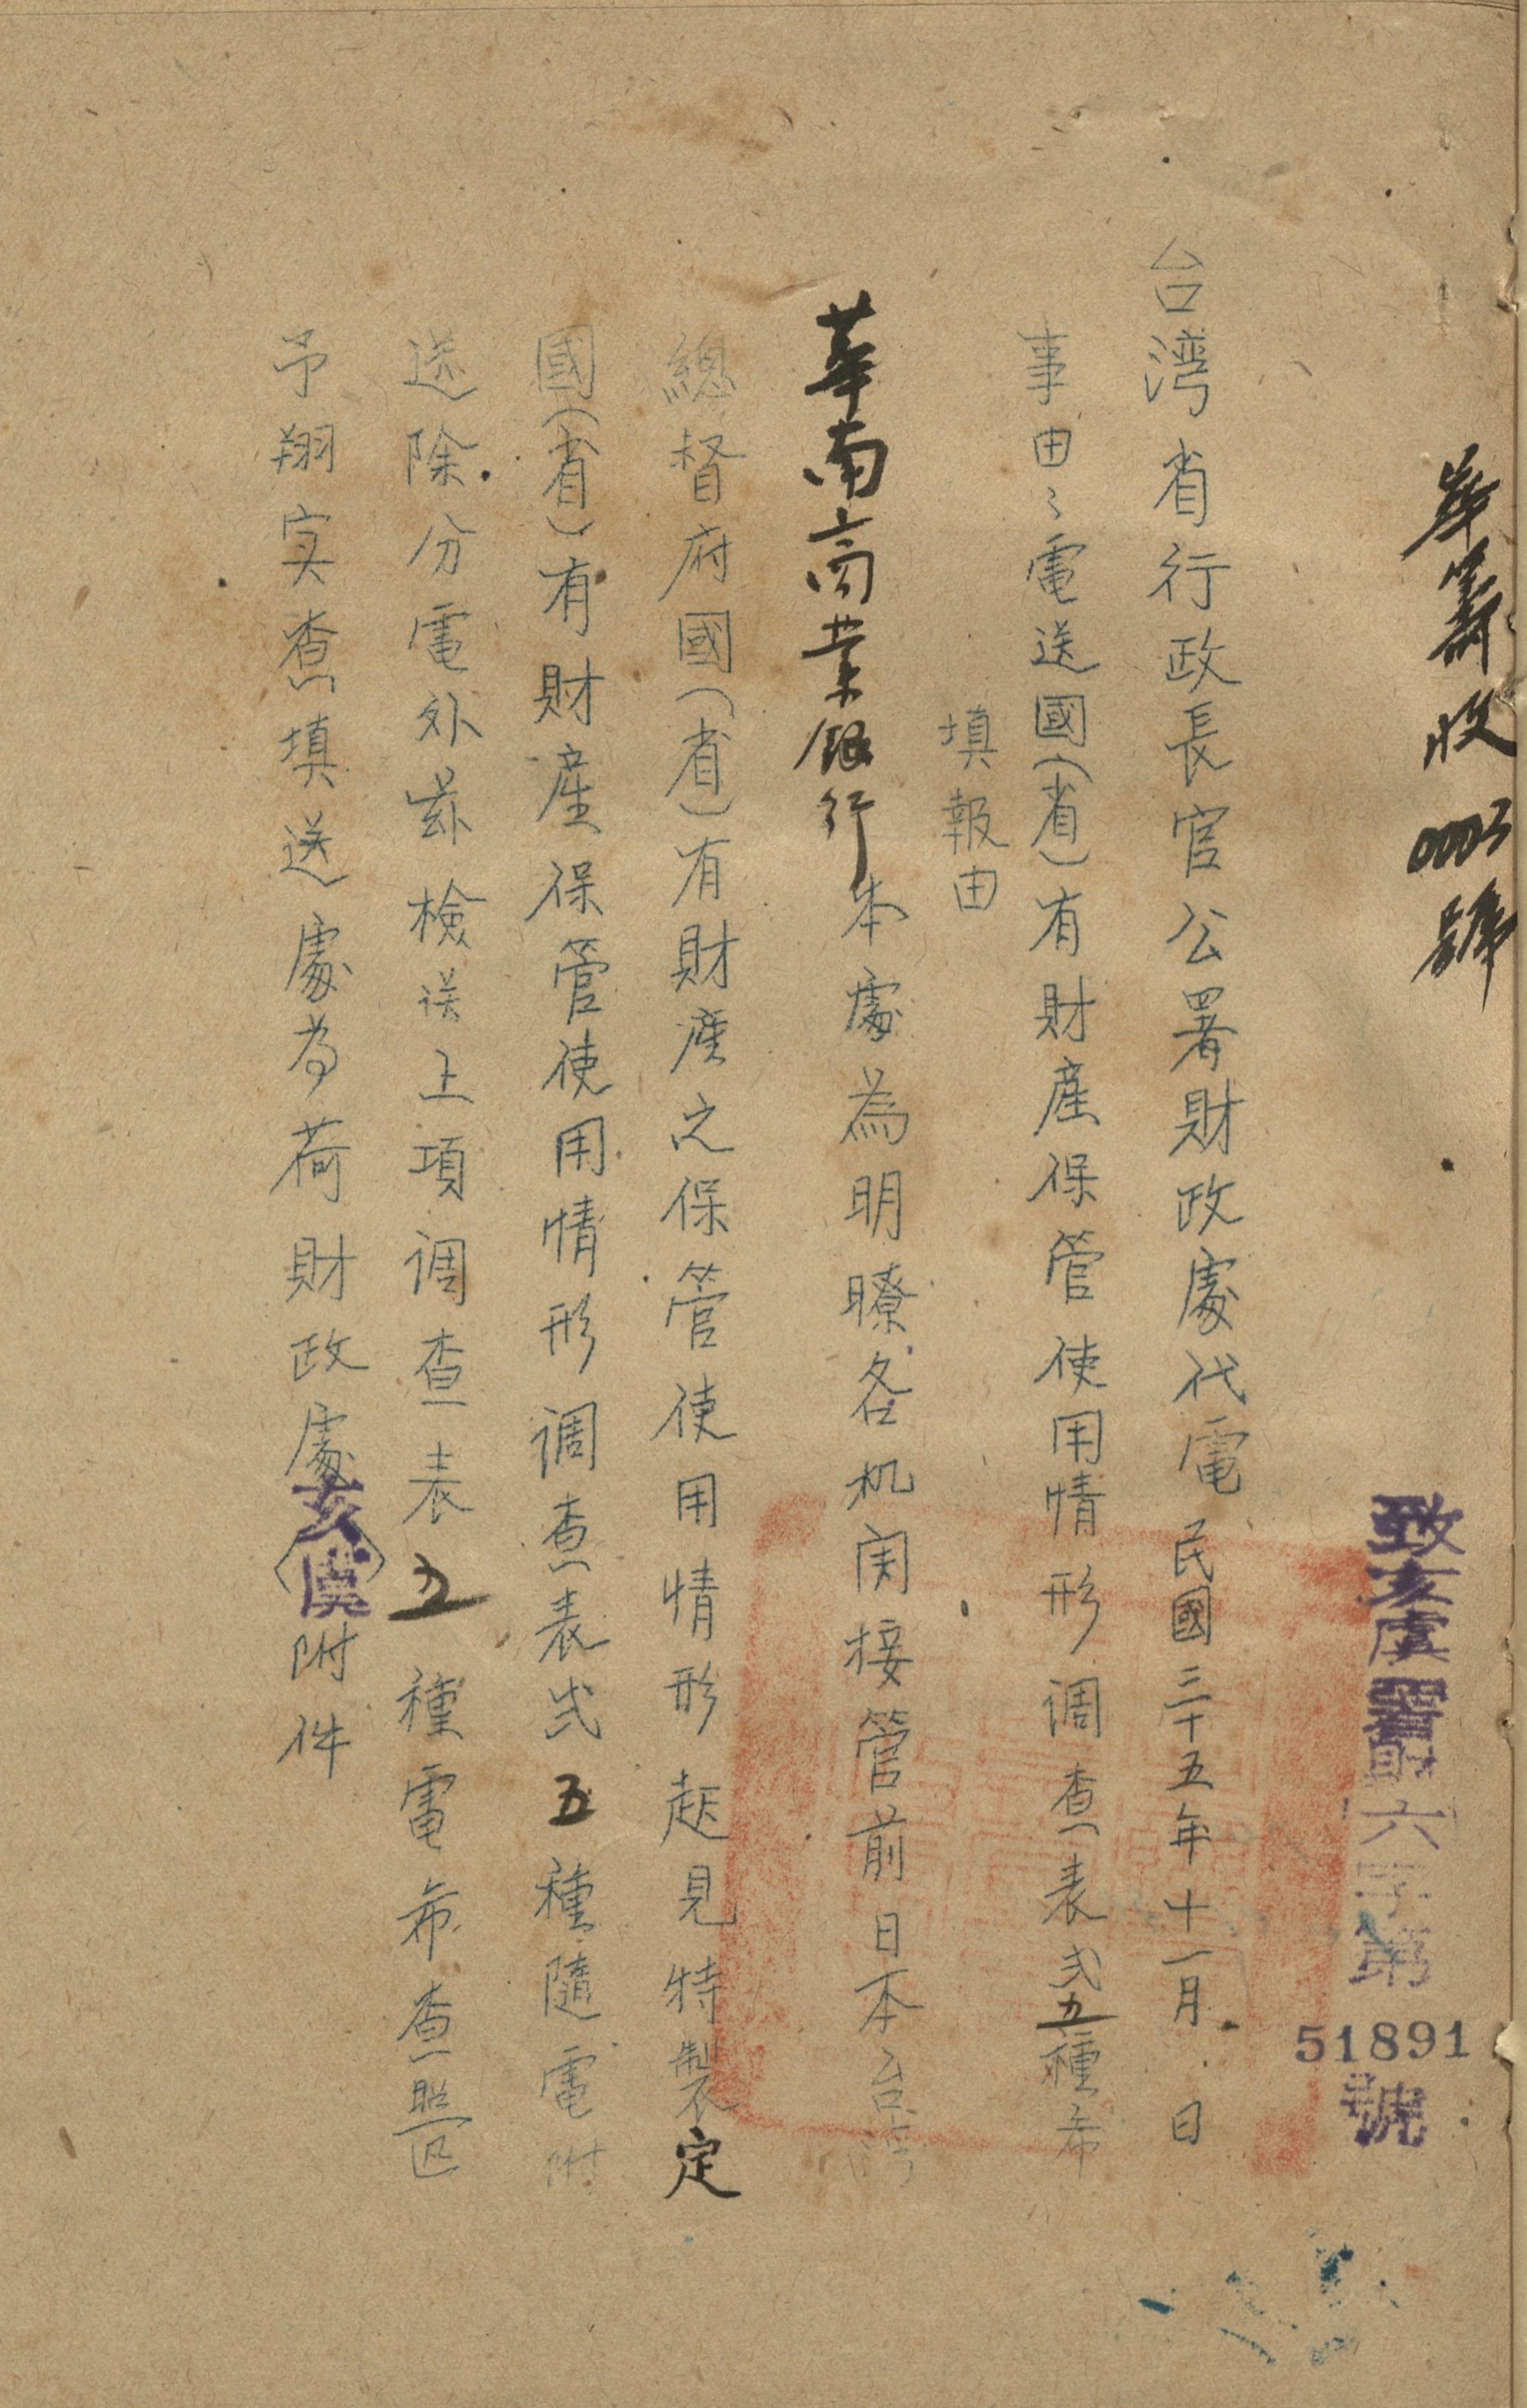 華籌收0003號
致亥虞署財六字第51891號
台湾省行政長官公署財政處代電 民國三十五年十一月 日
事由:電送國(省)有財產保管使用情形调查表弍五種希
填報由
華南商業銀行本處為明瞭各机関接管前日本台湾
總督府國(省)有財產之保管使用情形起見特製定
國(省)有財產保管使用情形调查表弍五種隨電附
送除分電外兹檢送上項调查表五種電希查照
予翔实查填送處为荷財政處亥虞附件